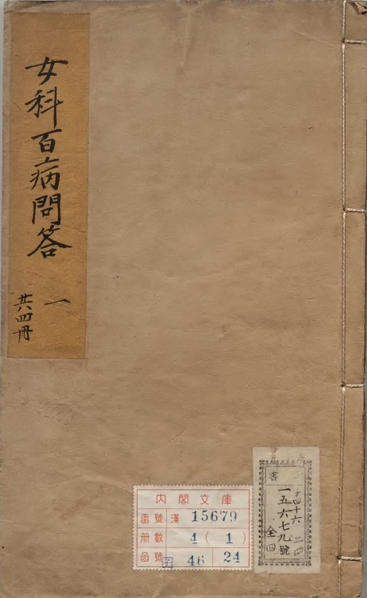 女科百病問答
一
共四冊
内閣文庫
番號 漢 15679
册數 4(1)
函號 子 46 24
書
子四十六 二四
一五六七九號
全四